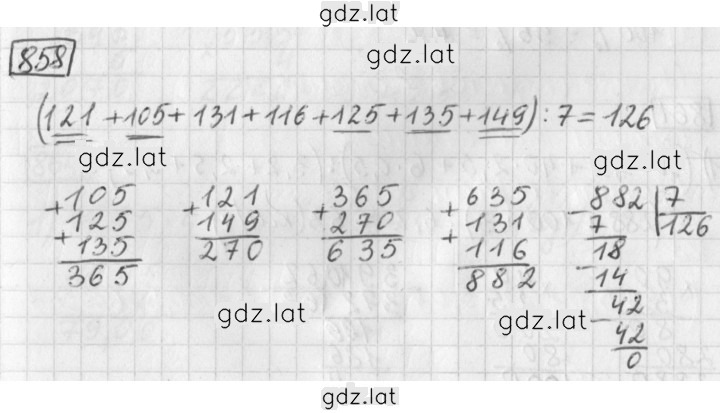 gdz.lat
858
gdz.lat
(121 + 105 + 131 + 116 + 125 + 135 + 149) : 7 = 126
gdz.lat
gdz.lat
+ 105
+ 125
135
365
+ 121
149
270
+ 365
270
635
+ 635
+ 131
116
882
- 882 | 7
7 | 126
18
- 14
42
- 42
0
gdz.lat
gdz.lat
gdz.lat